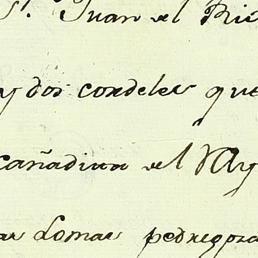 S.ⁿ Juan el Ri
y dos cordeles que
cañadica el
as Lomas pedregoza